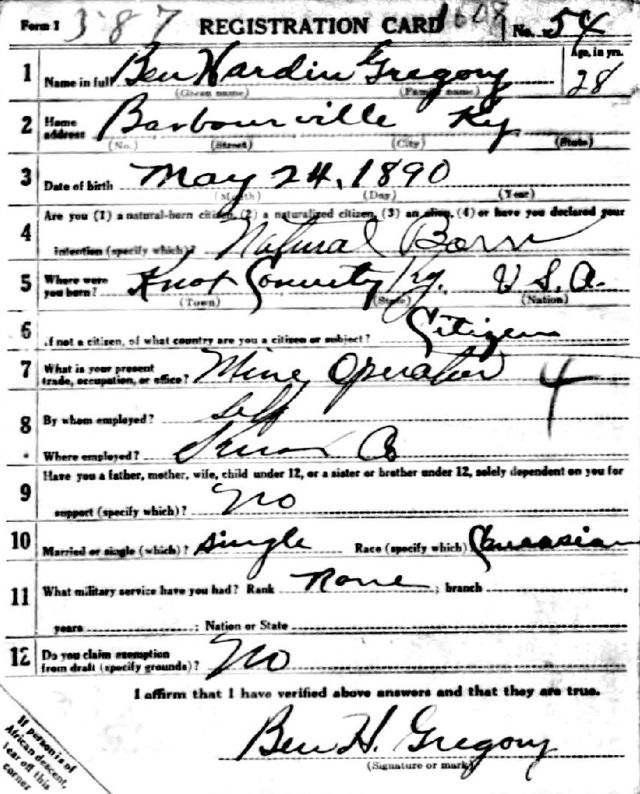 Form 1 387 REGISTRATION CARD 1608 No. 54
1 Name in full Ben Hardin Gregory Age, in yrs. 28
(Given name) (Family name)
2 Home address Barbourville Ky
(No.) (Street) (City) (State)
3 Date of birth May 24, 1890
(Month) (Day) (Year)
4 Are you (1) a natural-born citizen, (2) a naturalized citizen, (3) an alien, (4) or have you declared your
intention (specify which)? Natural Born
5 Where were you born? Knox County Ky. U.S.A.
(Town) (State) (Nation)
6 If not a citizen, of what country are you a citizen or subject? Citizen
7 What is your present trade, occupation, or office? Mine Operator 4
8 By whom employed? Self
Where employed? Co
9 Have you a father, mother, wife, child under 12, or a sister or brother under 12, solely dependent on you for
support (specify which)? No
10 Married or single (which)? Single Race (specify which) Caucasian
11 What military service have you had? Rank None ; branch
years ; Nation or State
12 Do you claim exemption from draft (specify grounds)? No
I affirm that I have verified above answers and that they are true.
Ben H. Gregory
(Signature or mark)
If person is of
African descent,
tear off this
corner